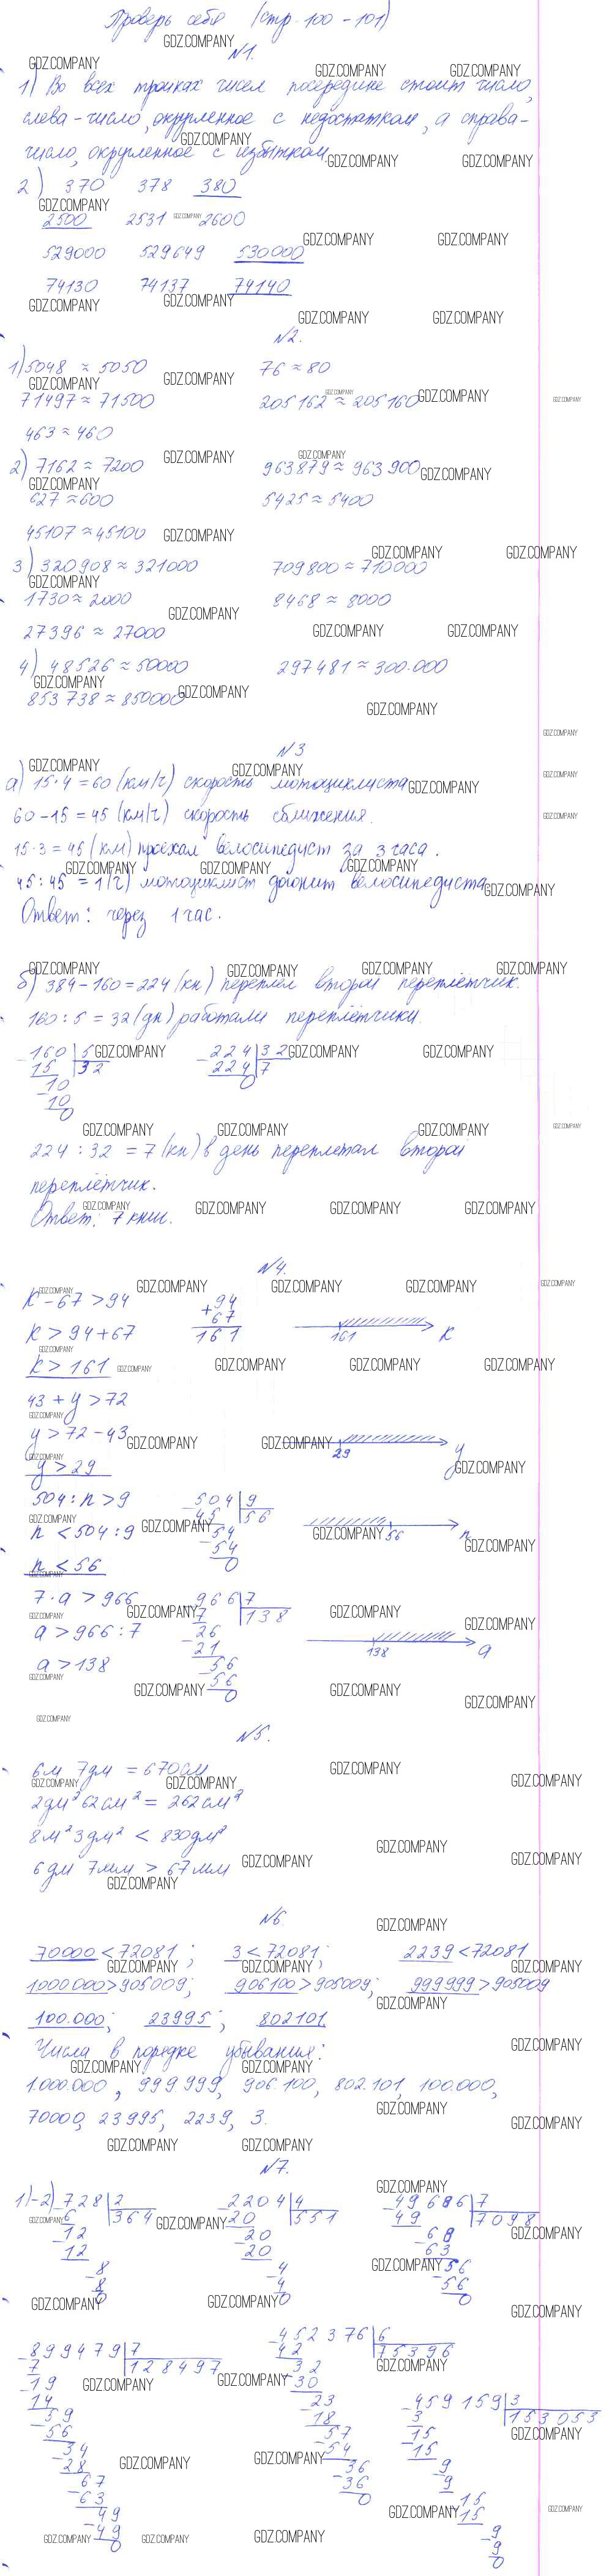 Проверь себя (стр. 100 - 101)
№1.
1) Во всех тройках чисел посередине стоит число,
слева - число, округленное с недостатком, а справа -
число, округленное с избытком.
2) 370 378 380
2500 2531 2600
529000 529649 530000
74130 74137 74140
№2.
1) 5048 ≈ 5050 76 ≈ 80
71497 ≈ 71500 205162 ≈ 205160
463 ≈ 460
2) 7162 ≈ 7200 963879 ≈ 963900
627 ≈ 600 5425 ≈ 5400
45107 ≈ 45100
3) 320908 ≈ 321000 709800 ≈ 710000
1730 ≈ 2000 8468 ≈ 8000
27396 ≈ 27000
4) 48526 ≈ 50000 297481 ≈ 300.000
853738 ≈ 850000
№3
а) 15·4 = 60 (км/ч) скорость мотоциклиста
60 - 15 = 45 (км/ч) скорость сближения.
15·3 = 45 (км) проехал велосипедист за 3 часа.
45 : 45 = 1 (ч) мотоциклист догонит велосипедиста
Ответ: через 1 час.
б) 384 - 160 = 224 (кн) переплел второй переплётчик.
160 : 5 = 32 (дн) работали переплётчики.
160 5 224 32
15 32 224 7
10 0
10
0
224 : 32 = 7 (кн) в день переплетал второй
переплётчик.
Ответ: 7 книг.
№4.
k - 67 > 94 +94
k > 94 + 67 67
161 161 k
k > 161
43 + y > 72
y > 72 - 43 29 y
y > 29
504 : n > 9 504 9
n < 504 : 9 45 56 56 n
54
54
n < 56 0
7·a > 966 966 7
7 138
a > 966 : 7 26
21 138 a
a > 138 56
56
0
№5.
6м 7дм = 670см
2дм² 62см² = 262см²
8м² 3дм² < 830дм²
6дм 7мм > 67мм
№6.
70000 < 72081; 3 < 72081; 2239 < 72081
1000000 > 905009; 906100 > 905009; 999999 > 905009
100.000; 23995; 802101.
Числа в порядке убывания:
1.000.000, 999.999, 906.100, 802.101, 100.000,
70000, 23995, 2239, 3.
№7.
1)-2) 728 2 2204 4 49686 7
6 364 20 551 49 7098
12 20 68
12 20 63
8 4 56
8 4 56
0 0 0
899479 7 452376 6
7 128497 42 75396
19 32 459159 3
14 30 3 153053
59 23 15
56 18 15
34 57 9
28 54 9
67 36 15
63 36 15
49 0 9
49 9
0 0
GDZ.COMPANY